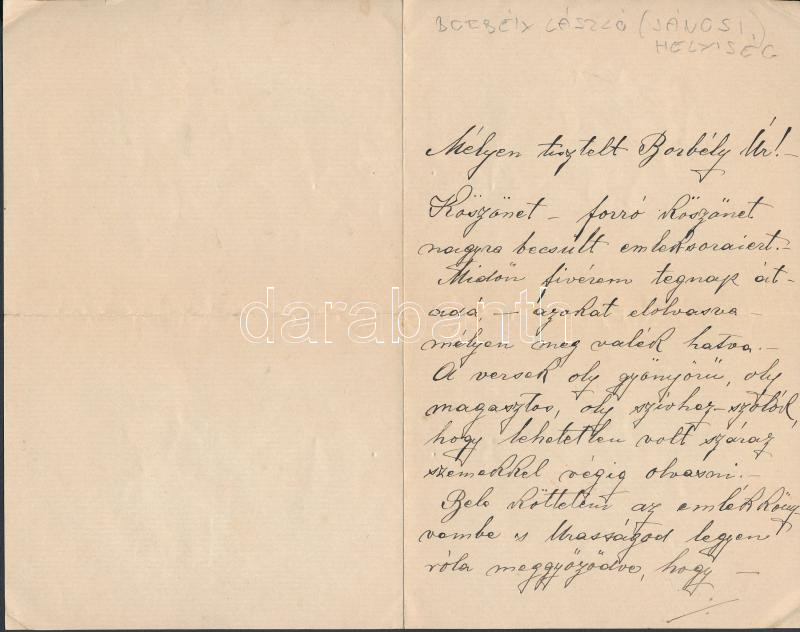 BORBÉLY LÁSZLÓ (JÁNOSI,
HELYISÉG
Mélyen tisztelt Borbély Úr! -
Köszönet - forró köszönet
nagyra becsült emléksoraiért. -
Midőn fivérem tegnap át-
adá, - azokat elolvasva -
mélyen meg valék hatva. -
A versek oly gyönyörű, oly
magasztos, oly szívhez-szólók,
hogy lehetetlen volt száraz
szemekkel végig olvasni. -
Bele köttetem az emlékköny-
vembe s Uraságod legyen
róla meggyőződve, hogy -
./.
darabanth